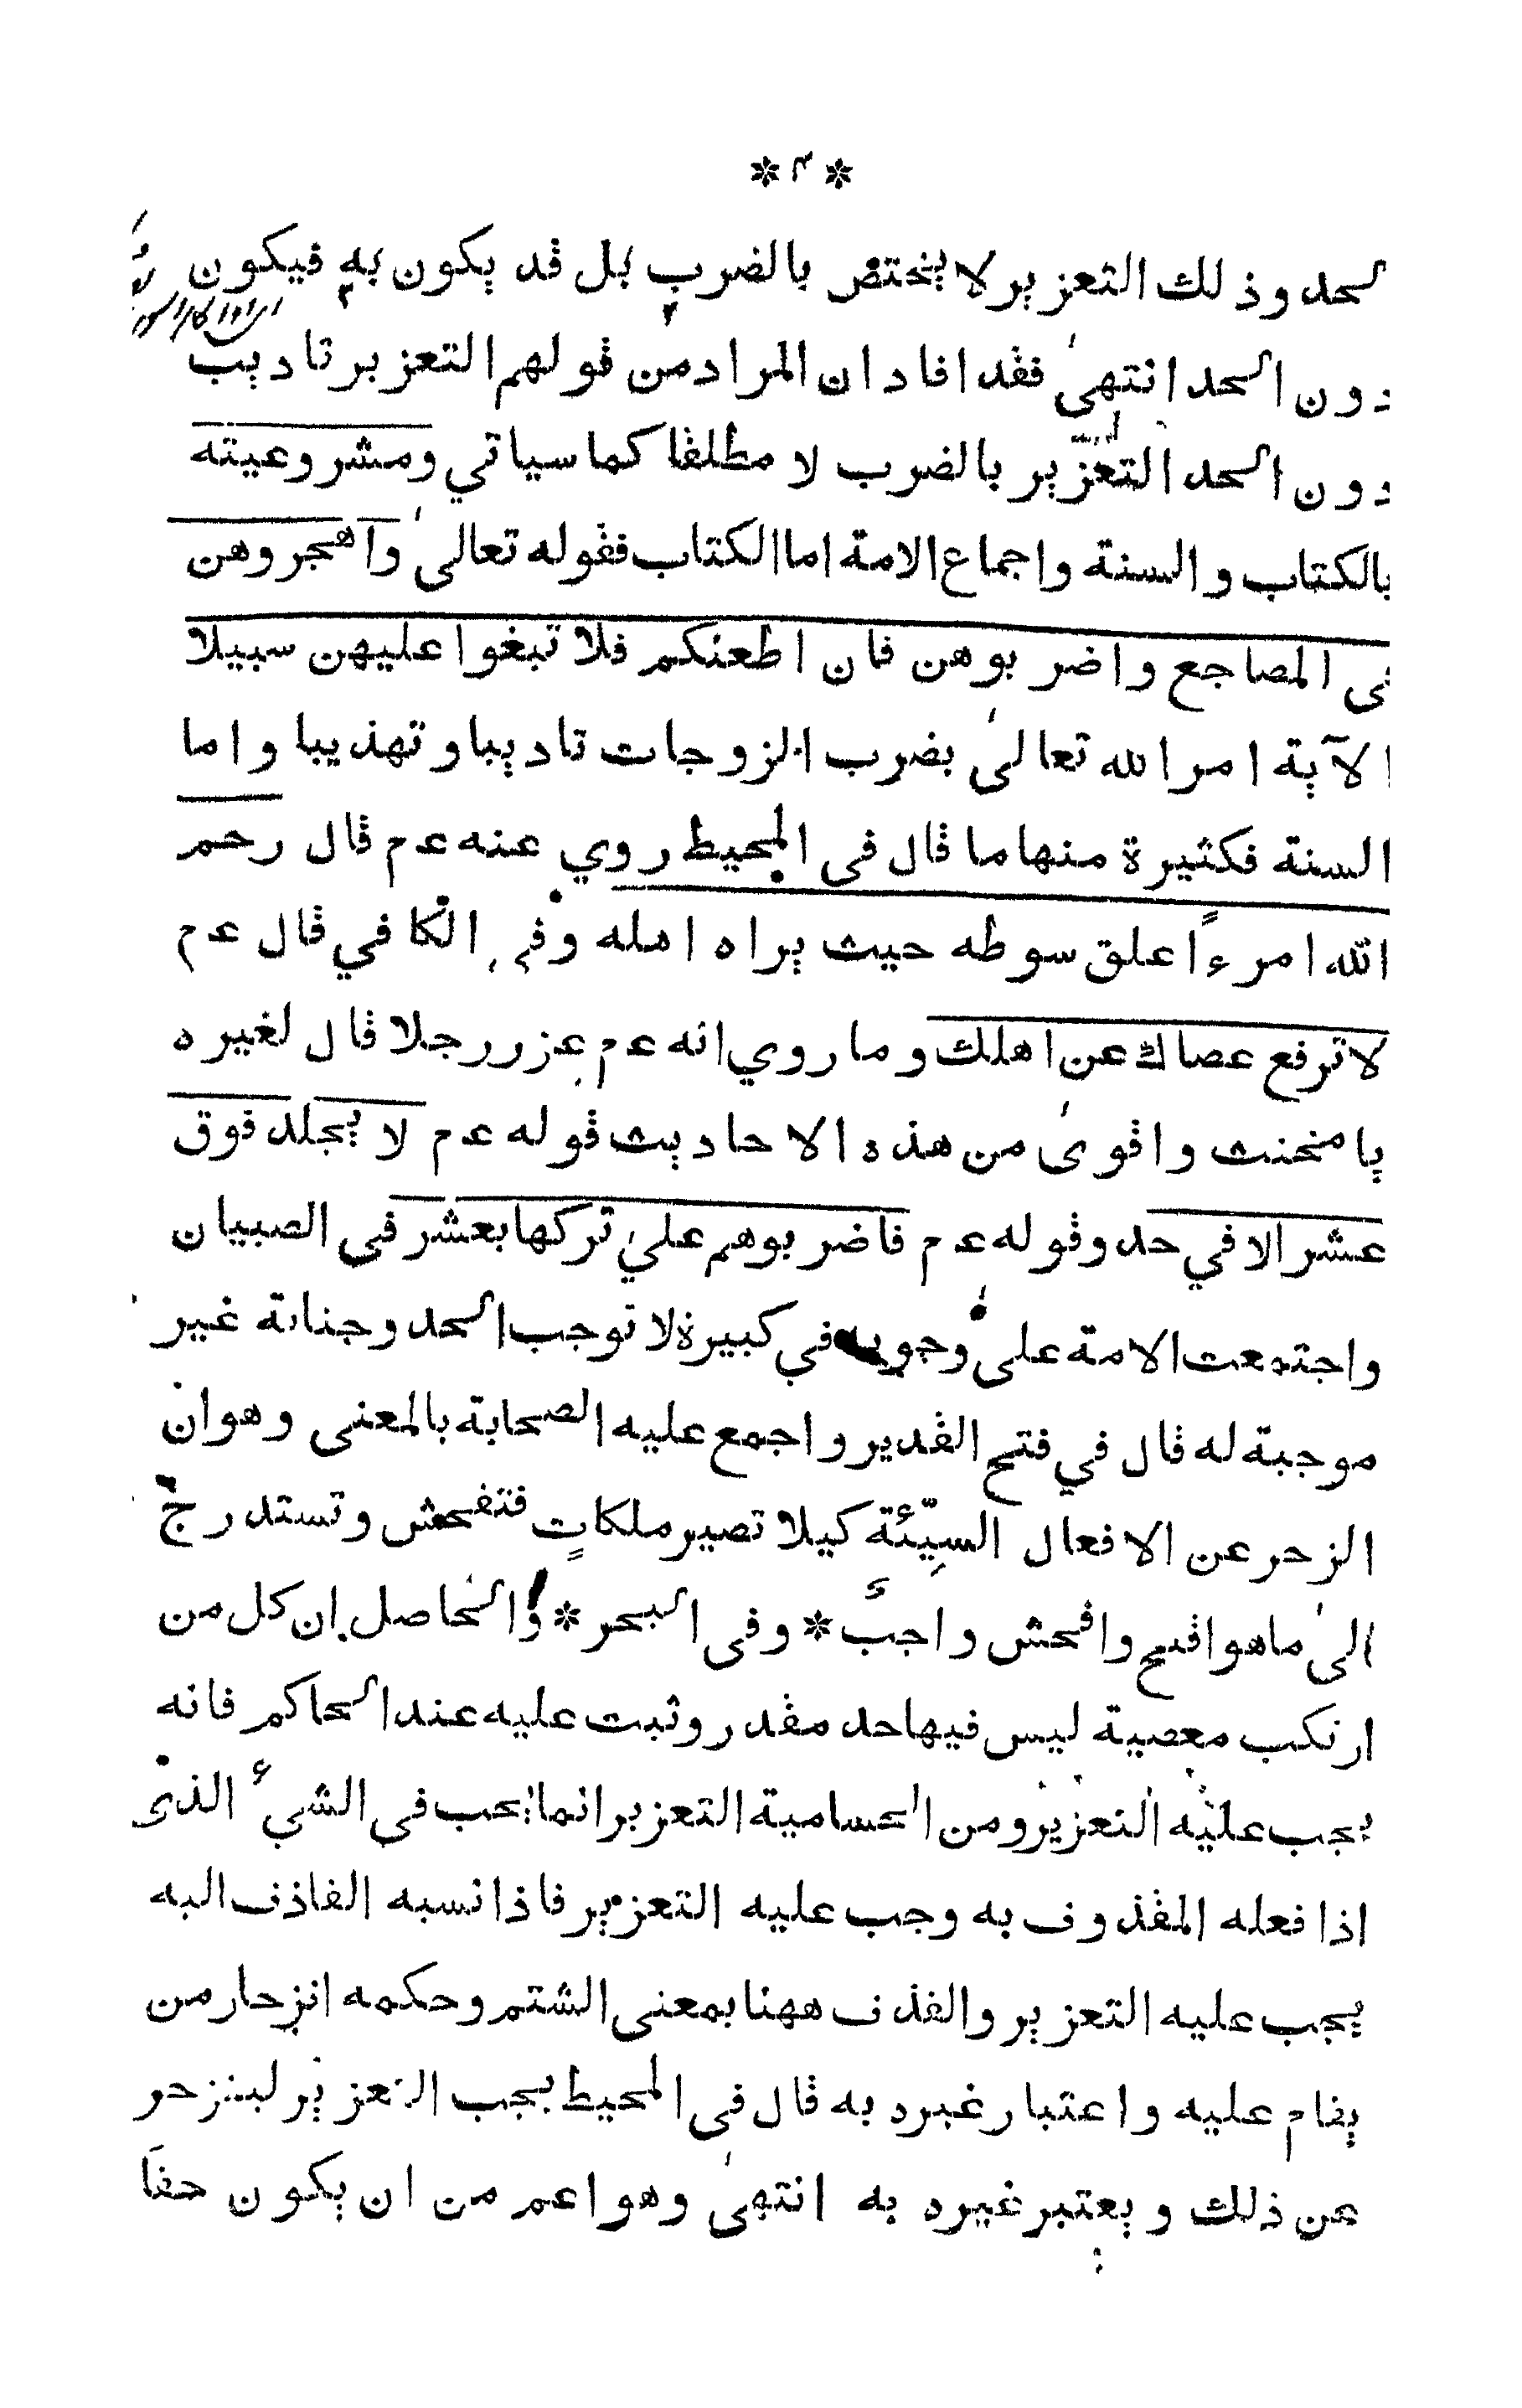 * ٣ *
الحد وذلك التعزير لا يختص بالضرب بل قد يكون به فيكون
دون الحد انتهى فقد افاد ان المراد من قولهم التعزير تاديب
دون الحد التعزير بالضرب لا مطلقا كما سياتي ومشروعيته
بالكتاب والسنة واجماع الامة اما الكتاب فقوله تعالى واهجروهن
في المضاجع واضربوهن فان اطعنكم فلا تبغوا عليهن سبيلا
الآية امر الله تعالى بضرب الزوجات تاديبا وتهذيبا واما
السنة فكثيرة منها ما قال في المحيط روي عنه عم قال رحم
الله امرءًا علق سوطه حيث يراه اهله وفي الكافي قال عم
لا ترفع عصاك عن اهلك وما روي انه عم عزر رجلا قال لغيره
يا مخنث واقوى من هذه الاحاديث قوله عم لا يجلد فوق
عشر الا في حد وقوله عم فاضربوهم على تركها بعشر في الصبيان
واجتمعت الامة على وجوبه في كبيرة لا توجب الحد وجناية غير
موجبة له قال في فتح القدير واجمع عليه الصحابة بالمعنى وهو ان
الزجر عن الافعال السيّئة كيلا تصير ملكاتٍ فتفحش وتستدرج
الى ما هو اقبح وافحش واجب * وفي البحر * والحاصل ان كل من
ارتكب معصية ليس فيها حد مقدر وثبت عليه عند الحاكم فانه
يجب عليه التعزير ومن الحسامية التعزير انما يجب في الشيء الذي
اذا فعله المقذوف به وجب عليه التعزير فاذا نسبه القاذف اليه
يجب عليه التعزير والقذف ههنا بمعنى الشتم وحكمه انزجار من
يقام عليه واعتبار غيره به قال في المحيط يجب التعزير لينزجر
عن ذلك ويعتبر غيره به انتهى وهو اعم من ان يكون حقا